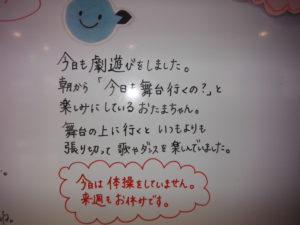 今日も劇遊びをしました。
朝から「今日も舞台行くの？」と
楽しみにしているおたまちゃん。
舞台の上に行くといつもよりも
張り切って歌やダンスを楽しんでいました。
今日は体操をしていません。
来週もお休みです。
ね。